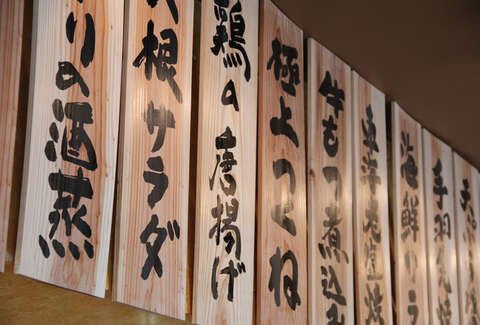 手羽
海鮮サラ
車海老塩焼
牛もつ煮込み
極上つくね
鶏の唐揚げ
根サラダ
りの酒蒸